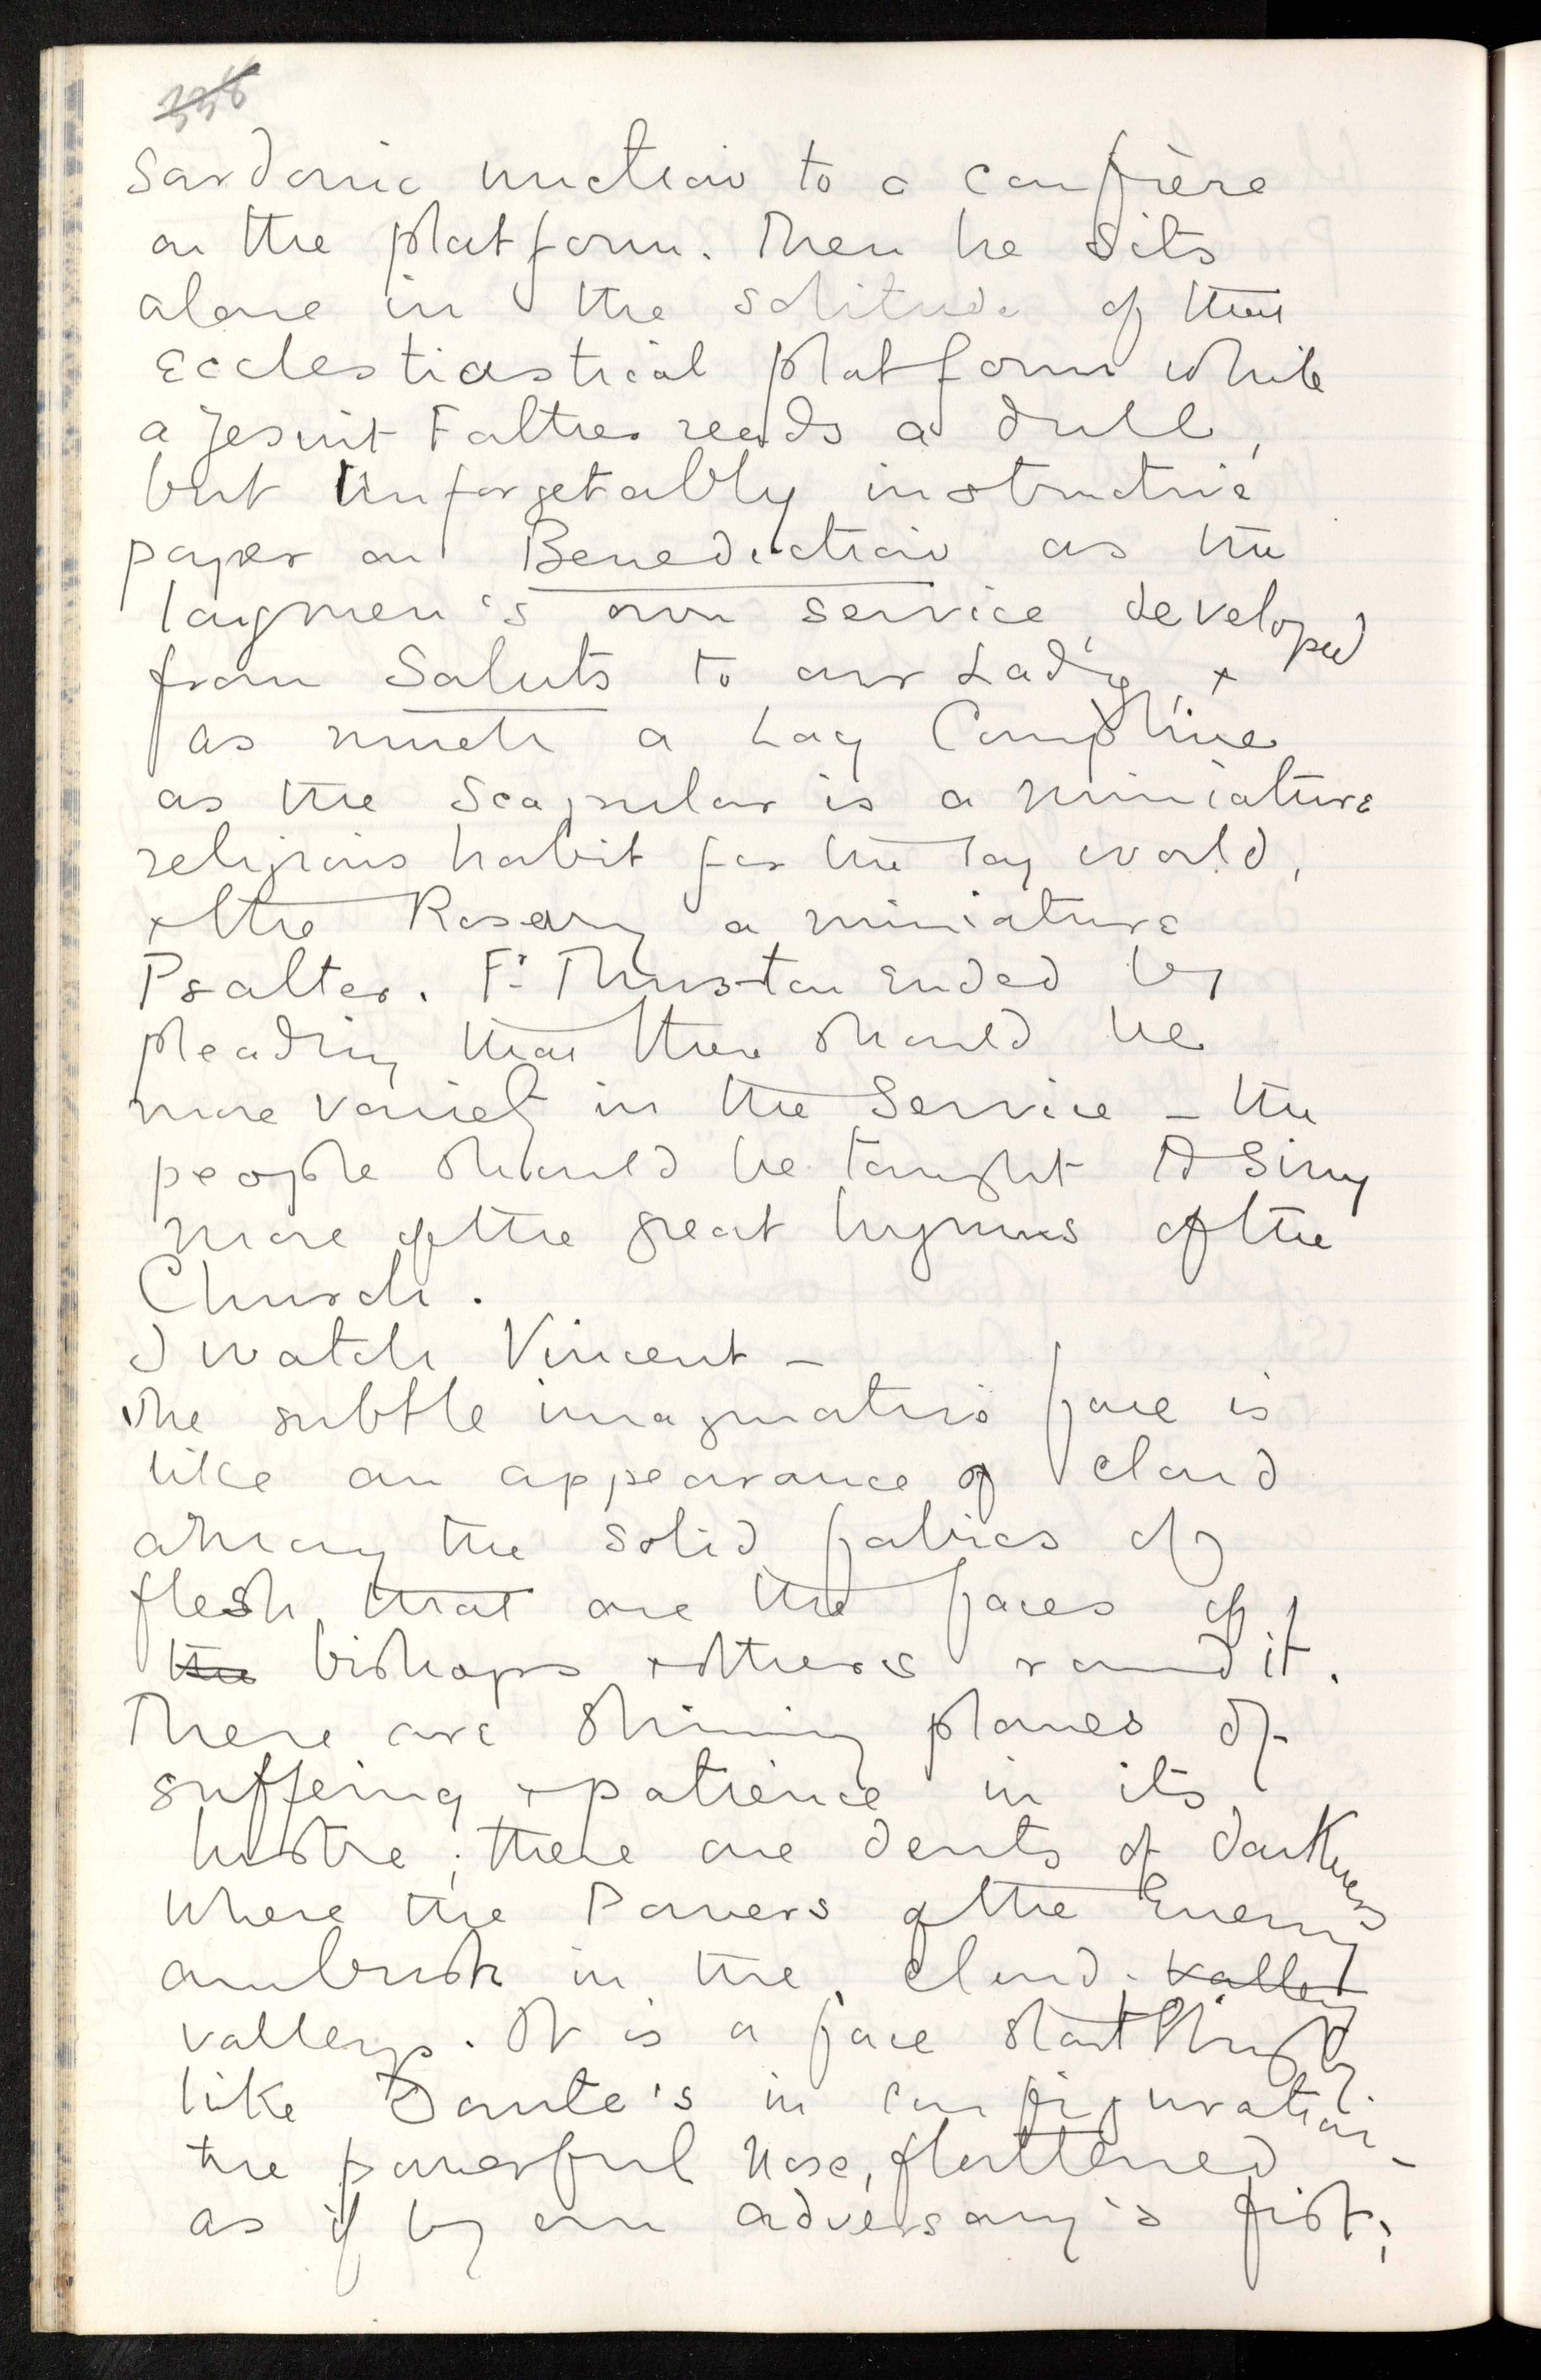 Sardonic unction to a confrère
on the platform. Then he sits
alone in the solitude of that
Ecclestiastical platform while
a Jesuit Father reads a dull,
but unforgetably instructive
paper on Benediction as the
laymen's own service, developed
from Saluts to our Lady, +
as much a Lay Compline
as the Scapular is a miniature
religious habit for the lay world,
+ the Rosary a miniature
Psalter. Fr Thurston ended by
pleading that there should be
more variety in the Service – the
people should be taught to sing
more of the great hymns of the
Church.
I watch Vincent –
The subtle imaginative face is
like an appearance of cloud
among the solid fabrics of
flesh that are the faces of
the bishops + others round it.
There are shining planes of
suffering + patience in its
lustre; there are dents of darkness
where the Powers of the Enemy
ambush in the cloud. valley
valleys. It is a face
like Dante's in configuration –
the powerful nose, flattened
as if by an adversary's fist;